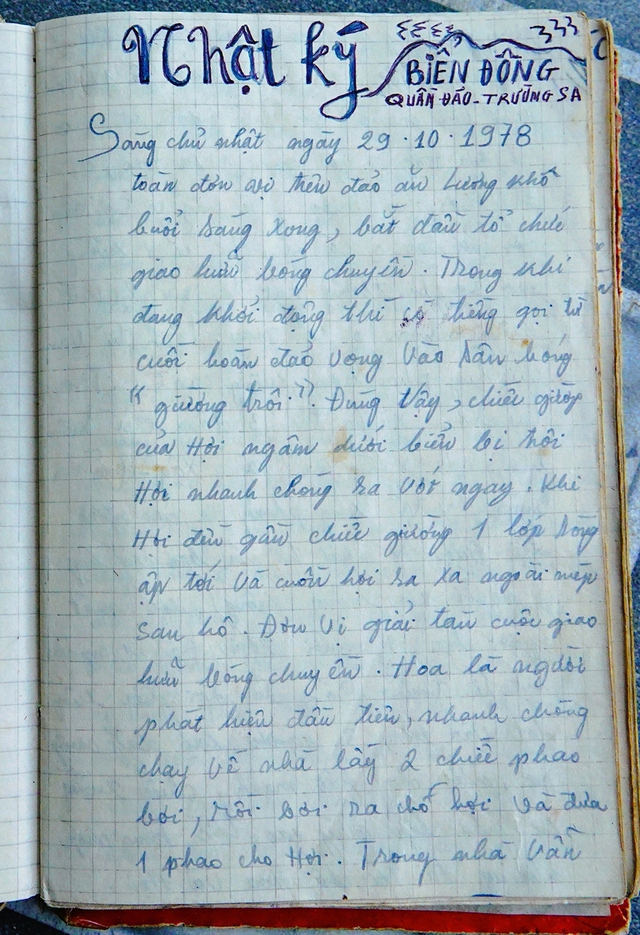 Nhật ký
BIỂN ĐÔNG
QUẦN ĐẢO - TRƯỜNG SA
Sáng chủ nhật ngày 29.10.1978
toàn đơn vị trên đảo ăn lương khô
buổi sáng xong, bắt đầu tổ chức
giao hữu bóng chuyền. Trong khi
đang khởi động thì có tiếng gọi từ
cuối hoàn đảo vọng vào sân bóng
"giường trôi". Đúng vậy, chiếc giường
của Hợi ngâm dưới biển bị trôi
Hợi nhanh chóng ra vớt ngay. Khi
Hợi đến gần chiếc giường 1 lớp sóng
ập tới và cuốn hợi ra xa ngoài mép
san hô. Đơn vị giải tán cuộc giao
hữu bóng chuyền. Hoa là người
phát hiện đầu tiên, nhanh chóng
chạy về nhà lấy 2 chiếc phao
bơi, rồi bơi ra chỗ hợi và đưa
1 phao cho Hợi. Trong nhà vẫn